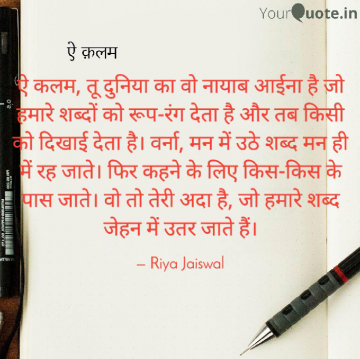 YourQuote.in
ऐ क़लम
ऐ कलम, तू दुनिया का वो नायाब आईना है जो
हमारे शब्दों को रूप-रंग देता है और तब किसी
को दिखाई देता है। वर्ना, मन में उठे शब्द मन ही
में रह जाते। फिर कहने के लिए किस-किस के
पास जाते। वो तो तेरी अदा है, जो हमारे शब्द
जेहन में उतर जाते हैं।
– Riya Jaiswal